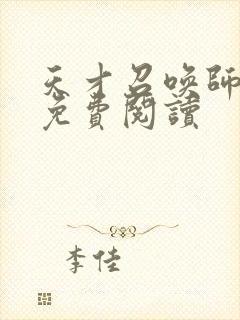 天才召喚師
免費閱讀
李佳